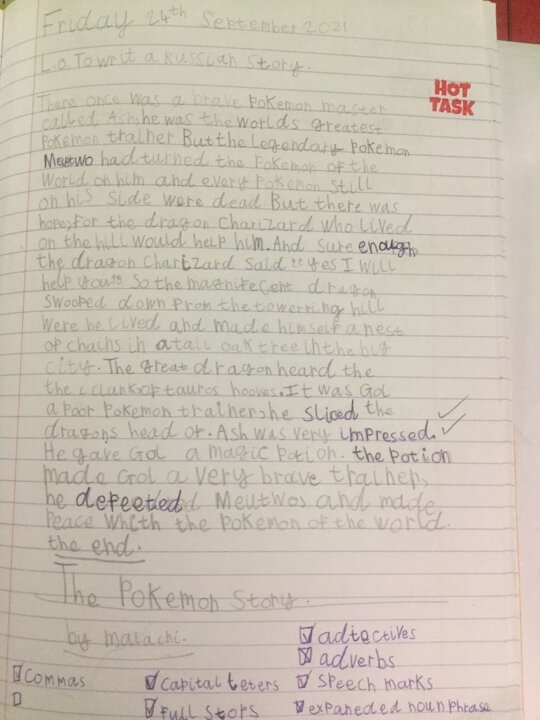 Friday 24th September 2021
L.O. To writ a Russian Story.
HOT
TASK
There once was a brave Pokemon master
called Ash, he was the worlds greatest
Pokemon trainer But the Legendary Pokemon
Meutwo had turned the Pokemon of the
World on him and every Pokemon still
on his side were dead But there was
hopes, for the dragon Charizard who lived
on the hill would help him. And sure enough,
the dragon Charizard said "Yes I will
help you" So the magnifecent dragon
swooped down from the towerring hill
Were he lived and made himself a nest
of chains in a tall oak tree in the big
city. The great dragon heard the
the clunk of tauros hooves. It was Gol
a poor Pokemon trainer, he sliced the
dragons head of. Ash was very impressed.
He gave Gol a magic potion. the potion
made Gol a very brave trainer,
he defeeted Meutwos and made
Peace Whith the Pokemon of the world.
the end.
The Pokemon Story.
by malachi.
adjectives
adverbs
Commas
Capital leters
Speech marks
full stops
expaneded noun phrase